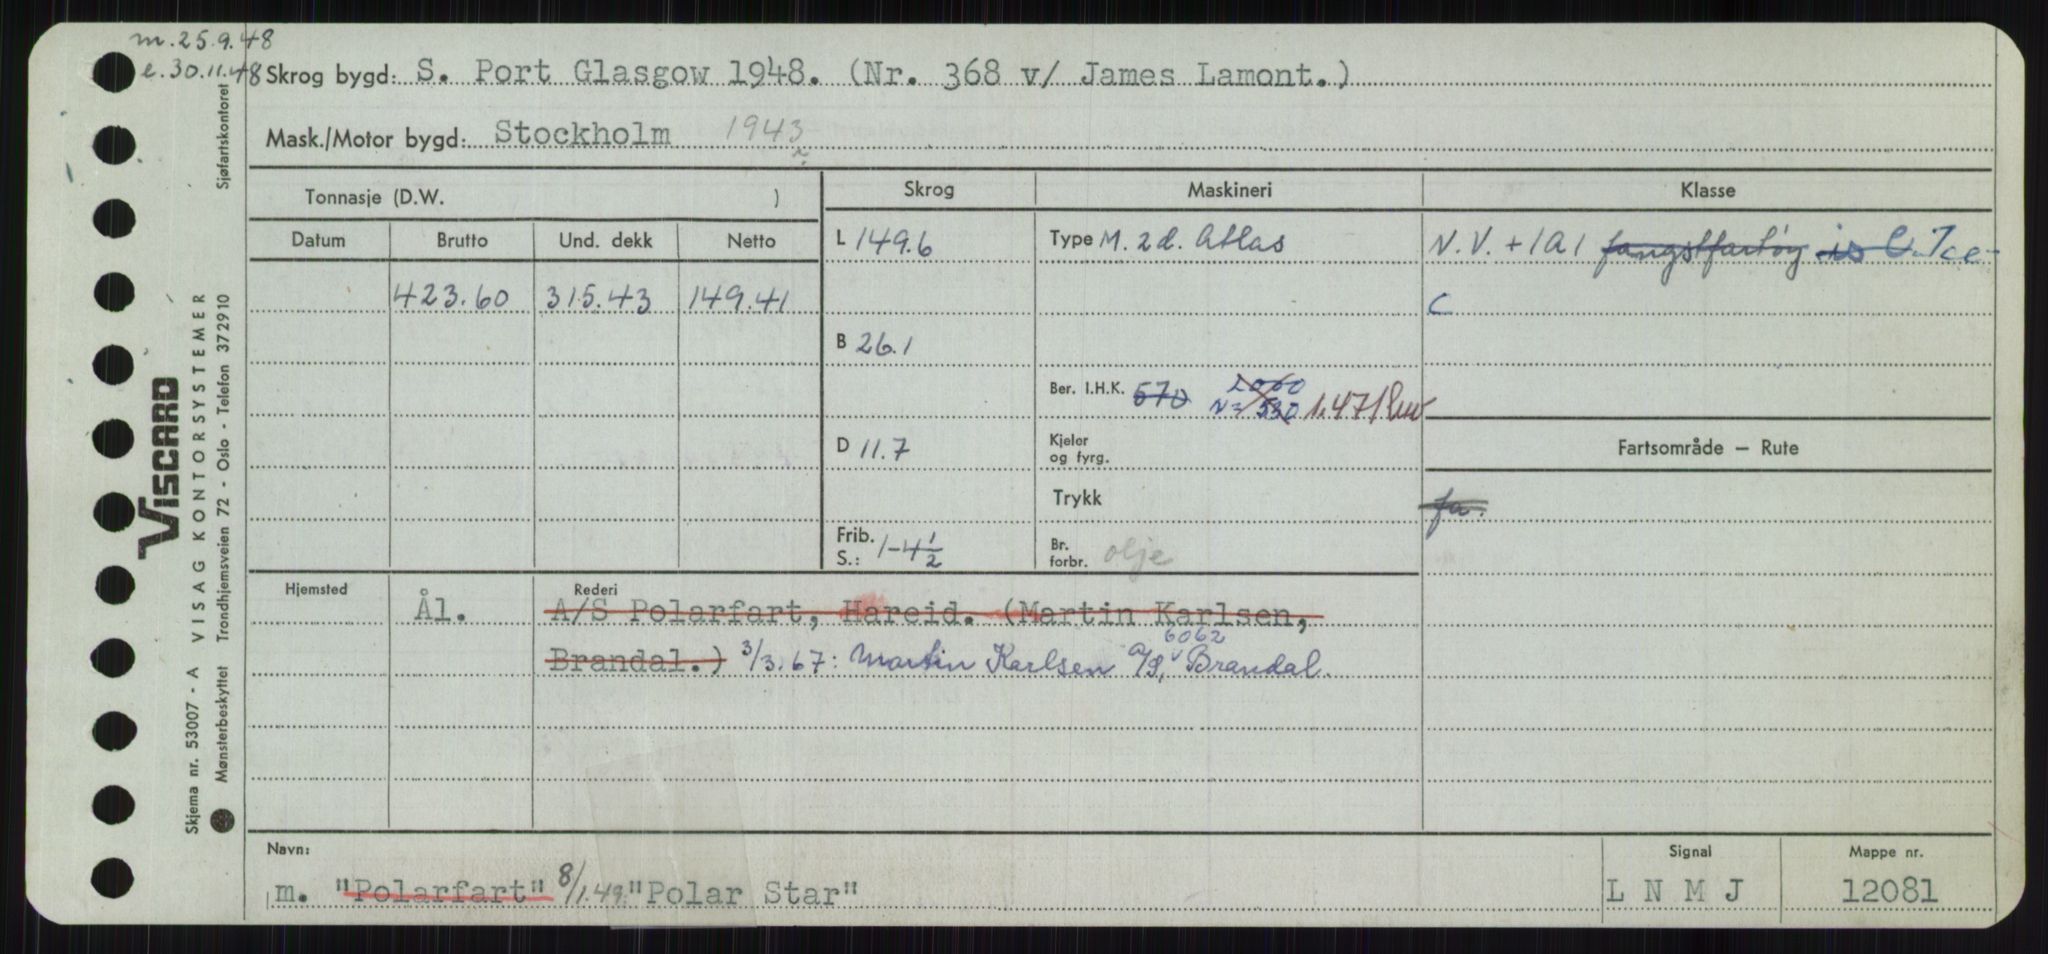 m. 25.9.48
e. 30.11.48 Skrog bygd: S. Port Glasgow 1948. (Nr. 368 v/ James Lamont.)
Mask./Motor bygd: Stockholm 1943
Tonnasje (D.W. )
Skrog Maskineri Klasse
Datum Brutto Und. dekk Netto
L 149.6 Type M. 2 d. Atlas N.V. + 1A1 fangstfartöy is C. Ice-
423.60 315.43 149.41 C
B 26.1
Ber. I.H.K. 570 2000 N= 530 1.471
D 11.7 Kjeler
og fyrg.
Fartsområde — Rute
Trykk fa.
Frib.
S.: 1-4 1/2 Br.
forbr. olje
Hjemsted Rederi
Ål. A/S Polarfart, Hareid. (Martin Karlsen,
6062
Brandal.) 3/3.67: Martin Karlsen A/S, Brandal.
Navn: Signal Mappe nr.
m. "Polarfart" 8/1.49 "Polar Star" L N M J 12081
Sjøfartskontoret
VISCARD
VISAG KONTORSYSTEMER
Trondhjemsveien 72 - Oslo - Telefon 372910
Skjema nr. 53007 - A
Mønsterbeskyttet